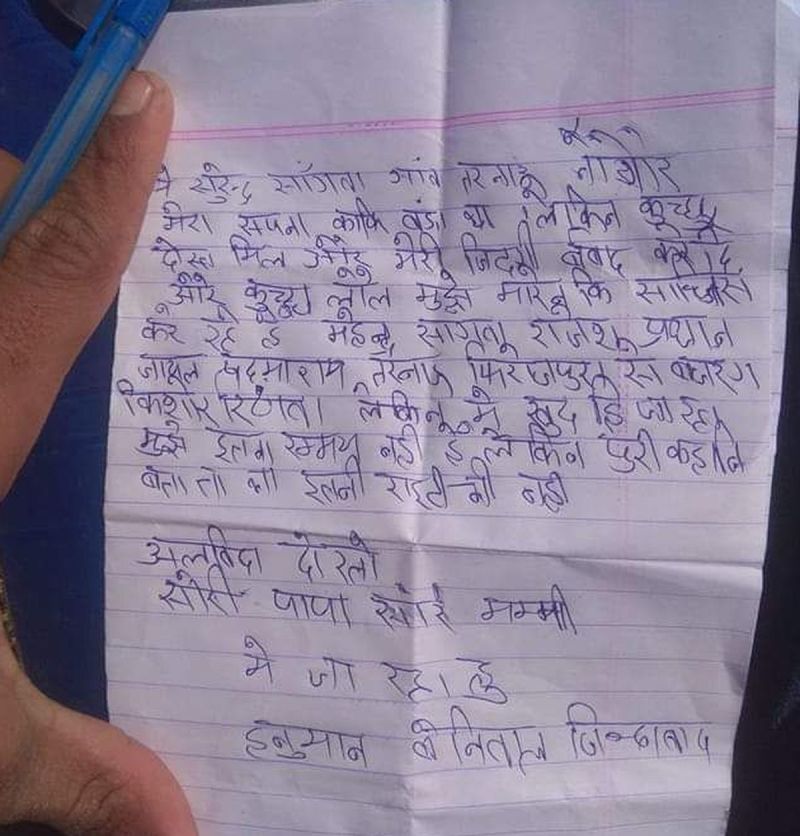 मे सुरेन्द्र सांगवा गांव तरनाऊ नागौर
मेरा सपना काफि बड़ा था लेकिन कुच्छ
दोस्त मिल और मेरी जिंदगी बर्बाद कर दि
और कुच्छ लोग मुझे मारने कि साजिस
कर रहे ह महेन्द्र सांगवा राजेश प्रधान
जायल तरनाऊ
किशोर लेकिन मे खुद हि जा रहा
मुझे इतना समय नही ह लेकिन पुरी कहानि
बता तो इतनी नही
अलविदा दोस्तो
सोरी पापा सोरि मम्मी
मे जा रहा हु
हनुमान बेनिवाल जिन्दाबाद